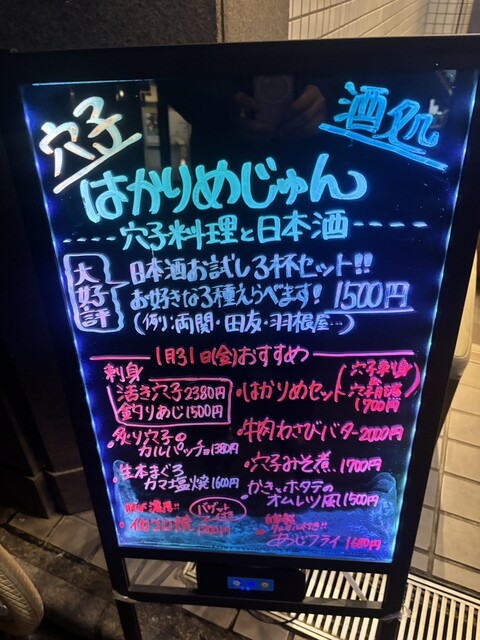 穴子
酒処
はかりめじゅん
穴子料理と日本酒
大好評
日本酒お試し3杯セット!!
お好きな3種えらべます! 1500円
(例:両関・田友・羽根屋…)
1月31日(金)おすすめ
刺身
活き穴子2380円
釣りあじ1500円
・炙り穴子のカルパッチョ1380円
・生本まぐろカマ塩焼1600円
バゲット
・はかりめセット(穴子刺身
1700円
・牛肉わさびバター2000円
・穴子みそ煮1700円
・かき、ホタテのオムレツ風1500円
あじフライ1680円